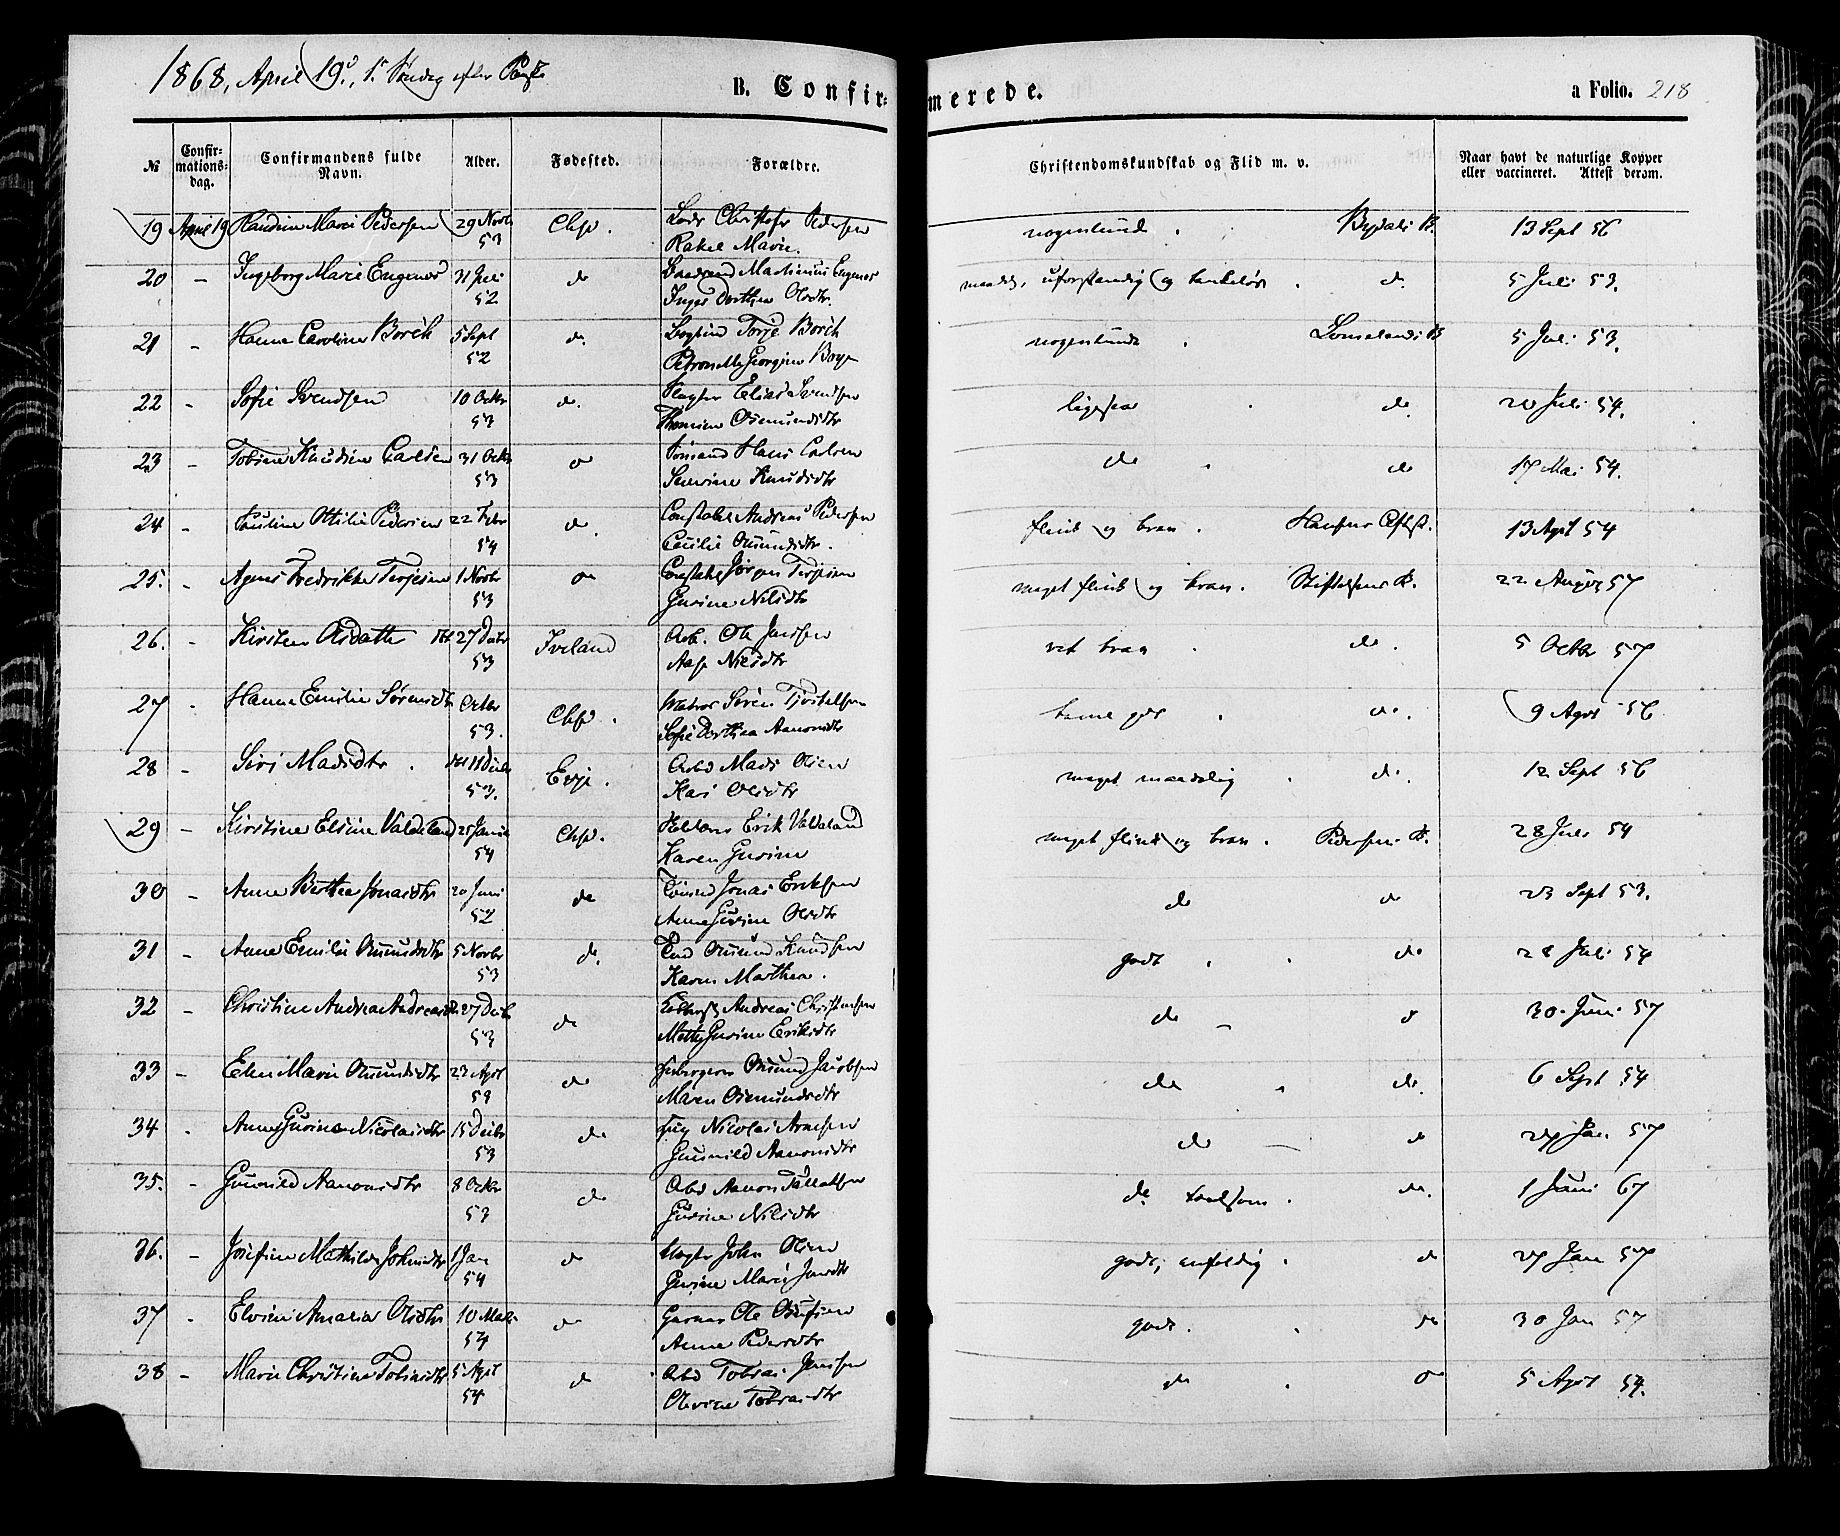 1868, April 19de, 1ste Søndag efter Paaske
B. Confirmerede.
a Folio. 218
№ Confirmationsdag. Confirmandens fulde Navn. Alder. Fødested. Forældre. Christendomskundskab og Flid m. v. Naar havt de naturlige Kopper eller vaccineret. Attest derom.
19 April 19 Marie Pedersen 29 Novbr Chsd. Christoffer Pedersen nogenlunde . 13 Sept 56
53 Rakel Marie
20 - Ingeborg Marie Eugenes 31 Juli do Mathinius Eugenes maadel. uforstandig og tankeløs . do. 5 Juli 53.
52 Inger Dorthea Olsdtr.
21 - Hanna Caroline Borék 5 Sept do. Terje Borék nogenlunde . 5 Juli 53.
52 Petronelle Georgine
22 - Sofie Svendsen 10 Octbr do. Elias Svendsen ligesaa . do 20 Juli 54.
53 Osmundsdtr
23 - Tobine Knudine Carlsen 31 Octbr do Hans Carlsen do . do 17 Mai 54.
53 Severine Knudsdtr
24 - Pauline Ottilie Pedersen 22 Febr do. Constabel Andreas Pedersen flink og brav . 13 Agst 54
54 Cecilie Osmundsdtr.
25. - Agnes Fredrikke Terjesen 1 Novbr do Constabel Jørgen Terjesen meget flink og brav . Stiftelsens B. 22 August 57
53 Gurine Nilsdtr
26. - Kirsten Olsdatter 27 Decbr Iveland Arb. Ole Jensen ret brav . do . 5 Octbr 57
53 Aase Nilsdtr
27 - Hanna Emilie Sørensdtr Octbr Chsd . Matros Søren . do. 9 Agst 56
53. Sofie Dorthea Aanonsdtr
28 - Siri Madsdtr . 11 Decbr Evje . Arbd Mads Olsen meget maadelig . do. 12 Sept 56
53. Kari Olsdtr
29 - Kirstine Elsine Valdeland 25 Januar Chsd. Erik Valdeland meget flink og brav . Pedersens B. 28 Juli 54
54 Karen Gurine
30 - Anne Berthea Jonasdtr 20 Juni do Jonas Eriksen do do 23 Sept 53.
52 Anne Gurine Olsdtr
31 - Anne Emilie Osmundsdtr 5 Novbr do. Osmund Knudsen godt . . do 28 Juli 54
53 Karen Marthea .
32 - Christine Andrea Andreasdtr 27 Decbr do Andreas Christensen do - do 30 Juni 57
53 Mette Gurine Eriksdtr
33 - Elen Marie Osmundsdtr 23 Agst do Osmund Jacobsen do . do. 6 Sept 54
53 Maren Osmundsdtr
34 - Anne Gurine Nicolaisdtr 15 Decbr do Nicolai Arnesen do - do 27 Jan 57
53 Gunnild Aanonsdtr
35. - Gunnild Aanonsdtr 8 Octbr do Arbd Aanon Tallaksen do taalsom . do. 1 Juni 67
53 Gurine Nilsdtr
36. - Josefine Mathilde Johnsdtr 1 Jan do Slagter John Olsen godt, enfoldig . do 27 Jan 57
54 Gurine Marie Jensdtr
37 - Elvine Amalia Olsdtr 10 Mai do Ole godt . . do 30 Jan 57
54 Anne Pedersdtr
38 - Marie Christine Tobiasdtr 5 Agst do Arbd Tobias Jensen do . do 5 Agst 54.
54 Olevine Tobiasdtr